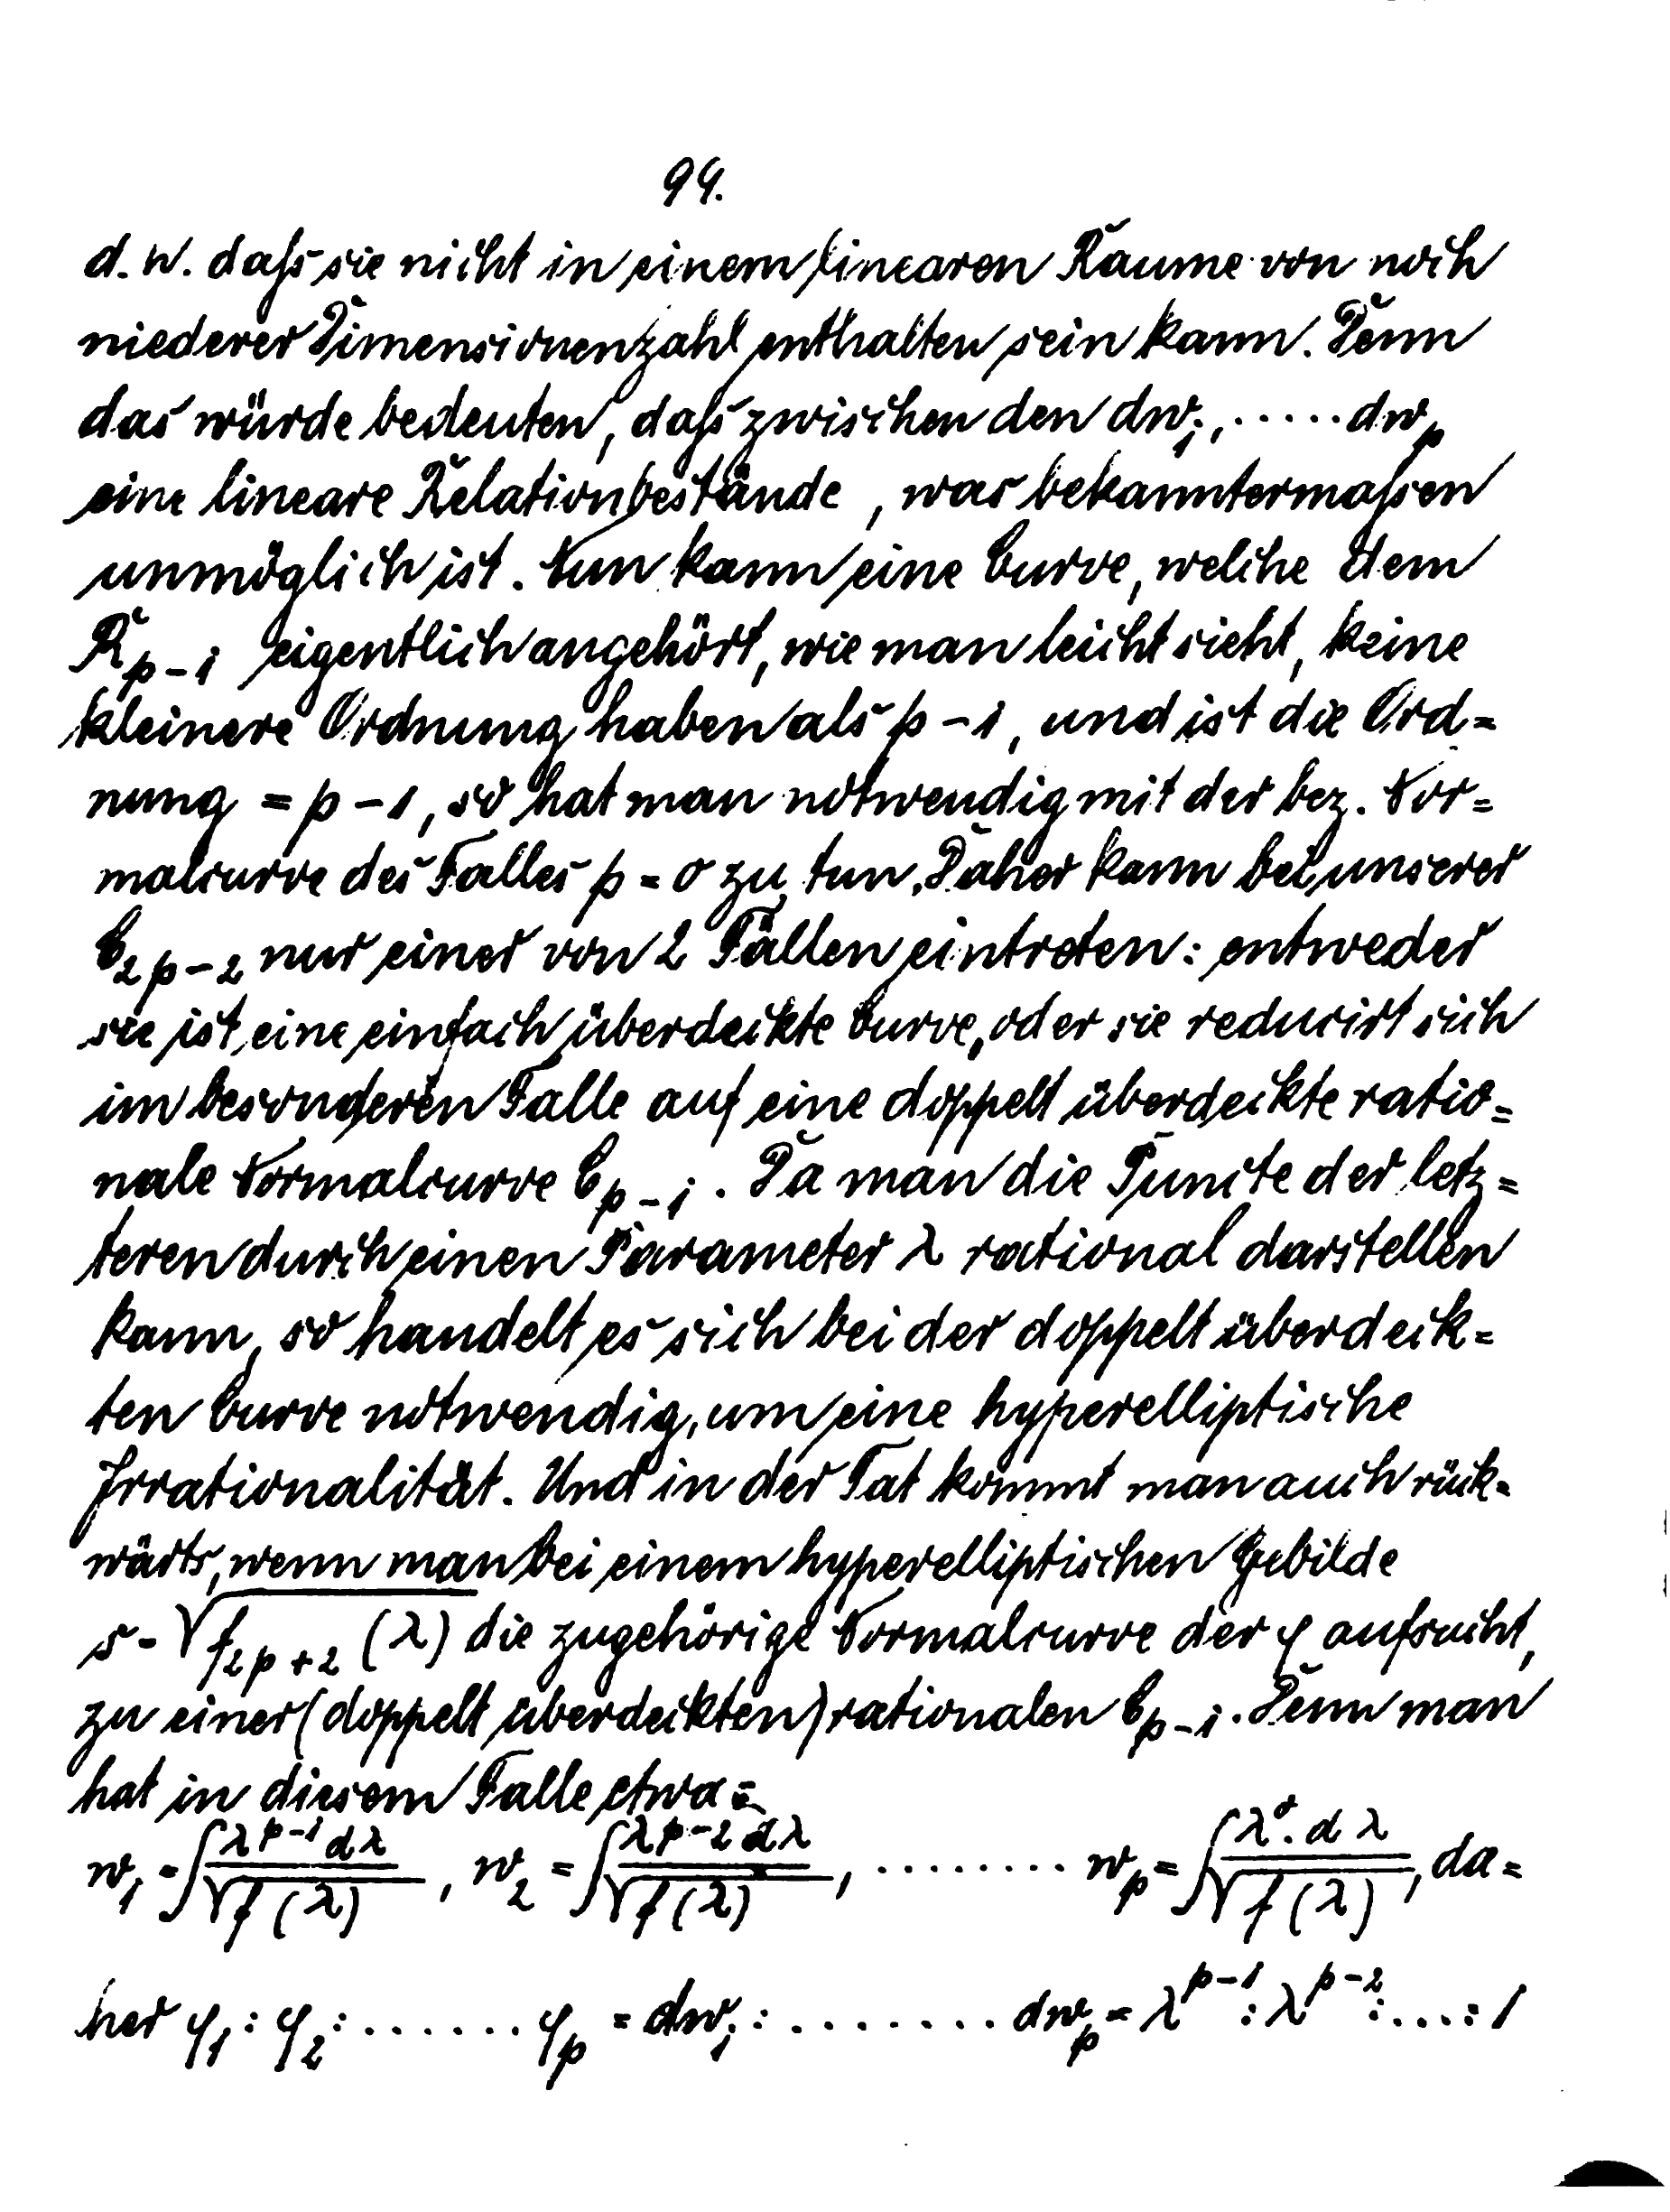 94.
d. w. daſs sie nicht in einem linearen Raume von noch
niederer Dimensionenzahl enthalten sein kann. Denn
das würde bedeuten, daſs zwischen den dw₁, ..... dwₚ
eine lineare Relation bestände, was bekanntermaſsen
unmöglich ist. Nun kann eine Curve, welche dem
R_{p-1} eigentlich angehört, wie man leicht sieht, keine
kleinere Ordnung haben als p-1, und ist die Ord=
nung = p-1, so hat man notwendig mit der bez. Nor=
malcurve des Falles p = 0 zu tun. Daher kann bei unserer
C_{2p-2} nur einer von 2 Fällen eintreten: entweder
sie ist eine einfach überdeckte Curve, oder sie reducirt sich
im besonderen Falle auf eine doppelt überdeckte ratio=
nale Normalcurve C_{p-1}. Da man die Puncte der letz=
teren durch einen Parameter λ rational darstellen
kann, so handelt es sich bei der doppelt überdeck=
ten Curve notwendig, um eine hyperelliptische
Irrationalität. Und in der Tat kommt man auch rück=
wärts, wenn man bei einem hyperelliptischen Gebilde
s = √f_{2p+2}(λ) die zugehörige Normalcurve der φ aufsucht,
zu einer (doppelt überdeckten) rationalen C_{p-1}. Denn man
hat in diesem Falle etwa:
w₁ = ∫ λ^{p-1} dλ / √f(λ), w₂ = ∫ λ^{p-2} dλ / √f(λ), ........ wₚ = ∫ λ⁰. dλ / √f(λ), da=
her φ₁ : φ₂ : ...... φₚ = dw₁ : ........ dwₚ = λ^{p-1} : λ^{p-2} : .... : 1